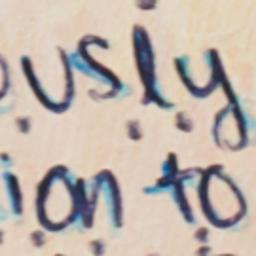 ously
ion to